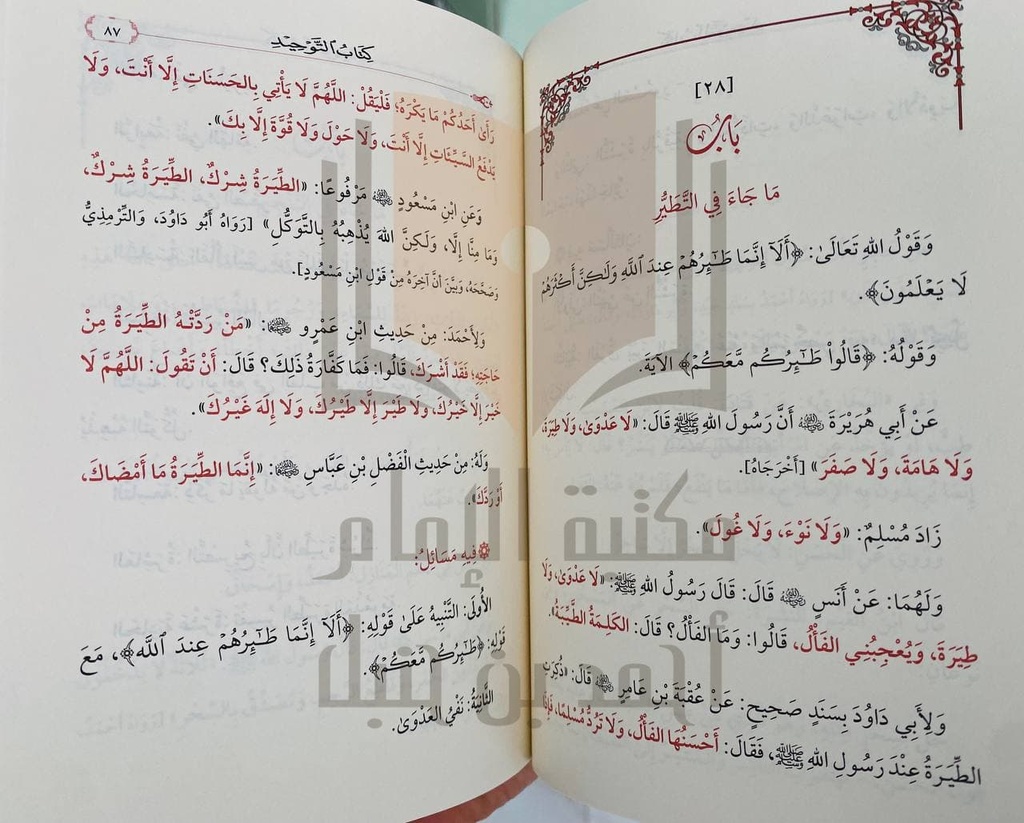 [٢٨]
بَابُ
مَا جَاءَ فِي التَّطَيُّرِ
وَقَوْلُ اللهِ تَعَالَىٰ: ﴿أَلَآ إِنَّمَا طَـٰٓئِرُهُمْ عِندَ ٱللَّهِ وَلَـٰكِنَّ أَكْثَرَهُمْ
لَا يَعْلَمُونَ﴾.
وَقَوْلُهُ: ﴿قَالُوا۟ طَـٰٓئِرُكُم مَّعَكُمْ﴾ الآيَةَ.
عَنْ أَبِي هُرَيْرَةَ ﵁ أَنَّ رَسُولَ اللهِ ﷺ قَالَ: «لَا عَدْوَىٰ، وَلَا طِيَرَةَ،
وَلَا هَامَةَ، وَلَا صَفَرَ» [أَخْرَجَاهُ].
زَادَ مُسْلِمٌ: «وَلَا نَوْءَ، وَلَا غُولَ».
وَلَهُمَا: عَنْ أَنَسٍ ﵁ قَالَ: قَالَ رَسُولُ اللهِ ﷺ: «لَا عَدْوَىٰ، وَلَا
طِيَرَةَ، وَيُعْجِبُنِي الفَأْلُ، قَالُوا: وَمَا الفَأْلُ؟ قَالَ: الكَلِمَةُ الطَّيِّبَةُ».
وَلِأَبِي دَاوُدَ بِسَنَدٍ صَحِيحٍ: عَنْ عُقْبَةَ بْنِ عَامِرٍ ﵁ قَالَ: «ذُكِرَتِ
الطِّيَرَةُ عِنْدَ رَسُولِ اللهِ ﷺ، فَقَالَ: أَحْسَنُهَا الفَأْلُ، وَلَا تَرُدُّ مُسْلِمًا، فَإِذَا
كِتَابُ التَّوْحِيدِ
٨٧
رَأَىٰ أَحَدُكُمْ مَا يَكْرَهُ؛ فَلْيَقُلْ: اللَّهُمَّ لَا يَأْتِي بِالحَسَنَاتِ إِلَّا أَنْتَ، وَلَا
يَدْفَعُ السَّيِّئَاتِ إِلَّا أَنْتَ، وَلَا حَوْلَ وَلَا قُوَّةَ إِلَّا بِكَ».
وَعَنِ ابْنِ مَسْعُودٍ ﵁ مَرْفُوعًا: «الطِّيَرَةُ شِرْكٌ، الطِّيَرَةُ شِرْكٌ،
وَمَا مِنَّا إِلَّا، وَلَكِنَّ اللهَ يُذْهِبُهُ بِالتَّوَكُّلِ» [رَوَاهُ أَبُو دَاوُدَ، وَالتِّرْمِذِيُّ
وَصَحَّحَهُ، وَبَيَّنَ أَنَّ آخِرَهُ مِنْ قَوْلِ ابْنِ مَسْعُودٍ].
وَلِأَحْمَدَ: مِنْ حَدِيثِ ابْنِ عَمْرٍو ﵄: «مَنْ رَدَّتْهُ الطِّيَرَةُ مِنْ
حَاجَتِهِ؛ فَقَدْ أَشْرَكَ، قَالُوا: فَمَا كَفَّارَةُ ذَلِكَ؟ قَالَ: أَنْ تَقُولَ: اللَّهُمَّ لَا
خَيْرَ إِلَّا خَيْرُكَ، وَلَا طَيْرَ إِلَّا طَيْرُكَ، وَلَا إِلَهَ غَيْرُكَ».
وَلَهُ: مِنْ حَدِيثِ الفَضْلِ بْنِ عَبَّاسٍ ﵄: «إِنَّمَا الطِّيَرَةُ مَا أَمْضَاكَ،
أَوْ رَدَّكَ».
فِيهِ مَسَائِلُ:
الأُولَى: التَّنْبِيهُ عَلَى قَوْلِهِ: ﴿أَلَآ إِنَّمَا طَـٰٓئِرُهُمْ عِندَ ٱللَّهِ﴾، مَعَ
قَوْلِهِ: ﴿طَـٰٓئِرُكُم مَّعَكُمْ﴾.
الثَّانِيَةُ: نَفْيُ العَدْوَىٰ.
مكتبة الإمام
أحمد بن حنبل